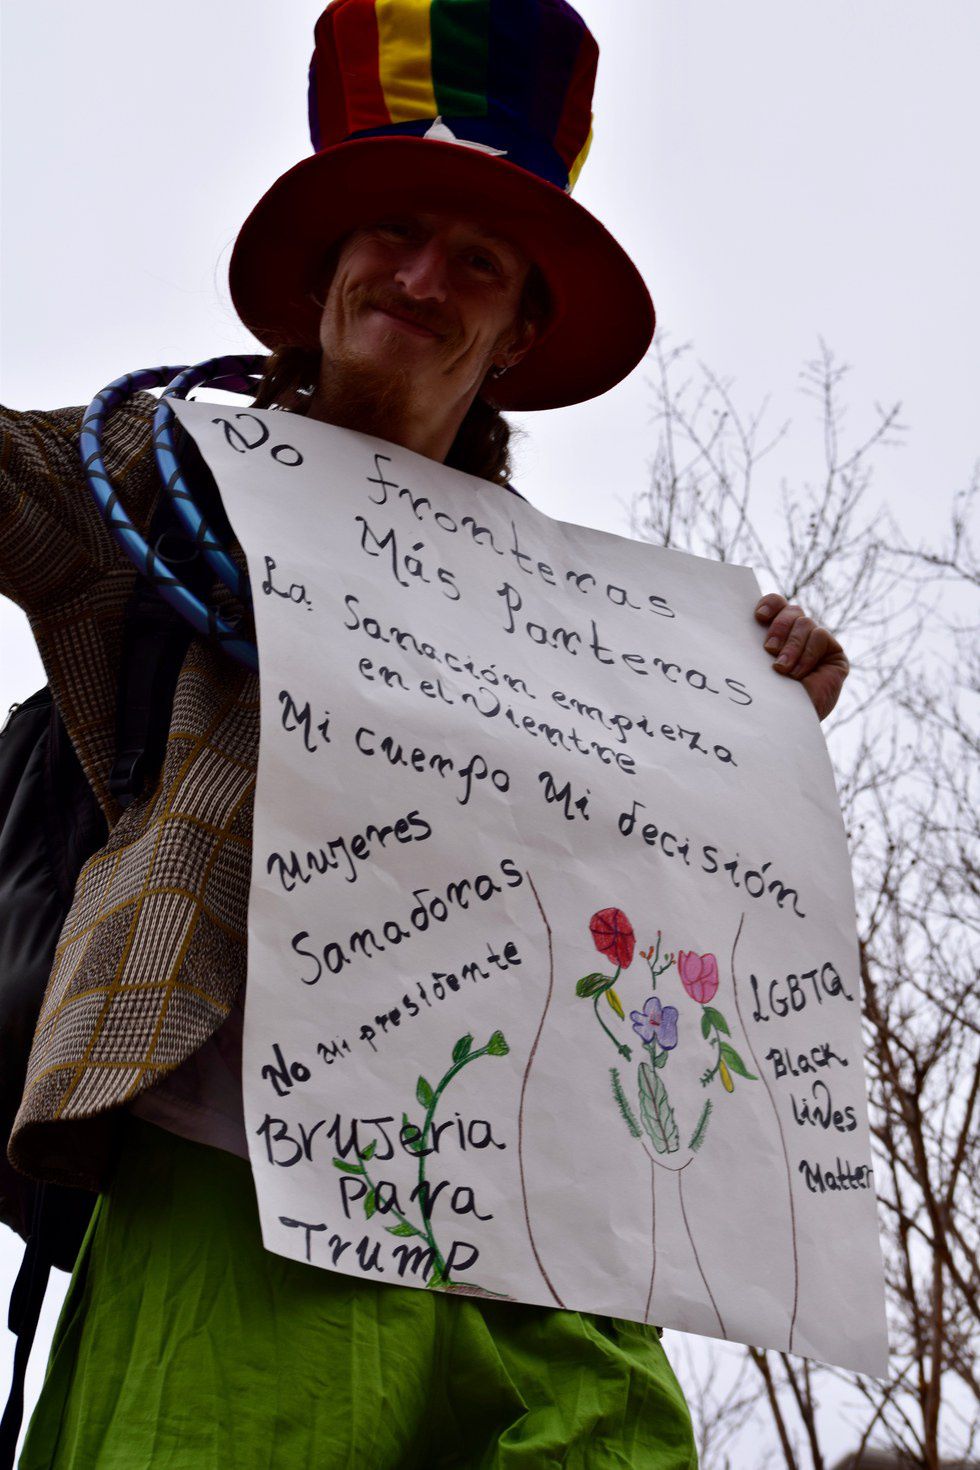 No fronteras
Más Parteras
La Sanación empieza
en el vientre
Mi cuerpo Mi decisión
Mujeres
Sanadoras
No Mi presidente
Brujeria
Para
Trump
LGBTQ
Black
lives
Matter